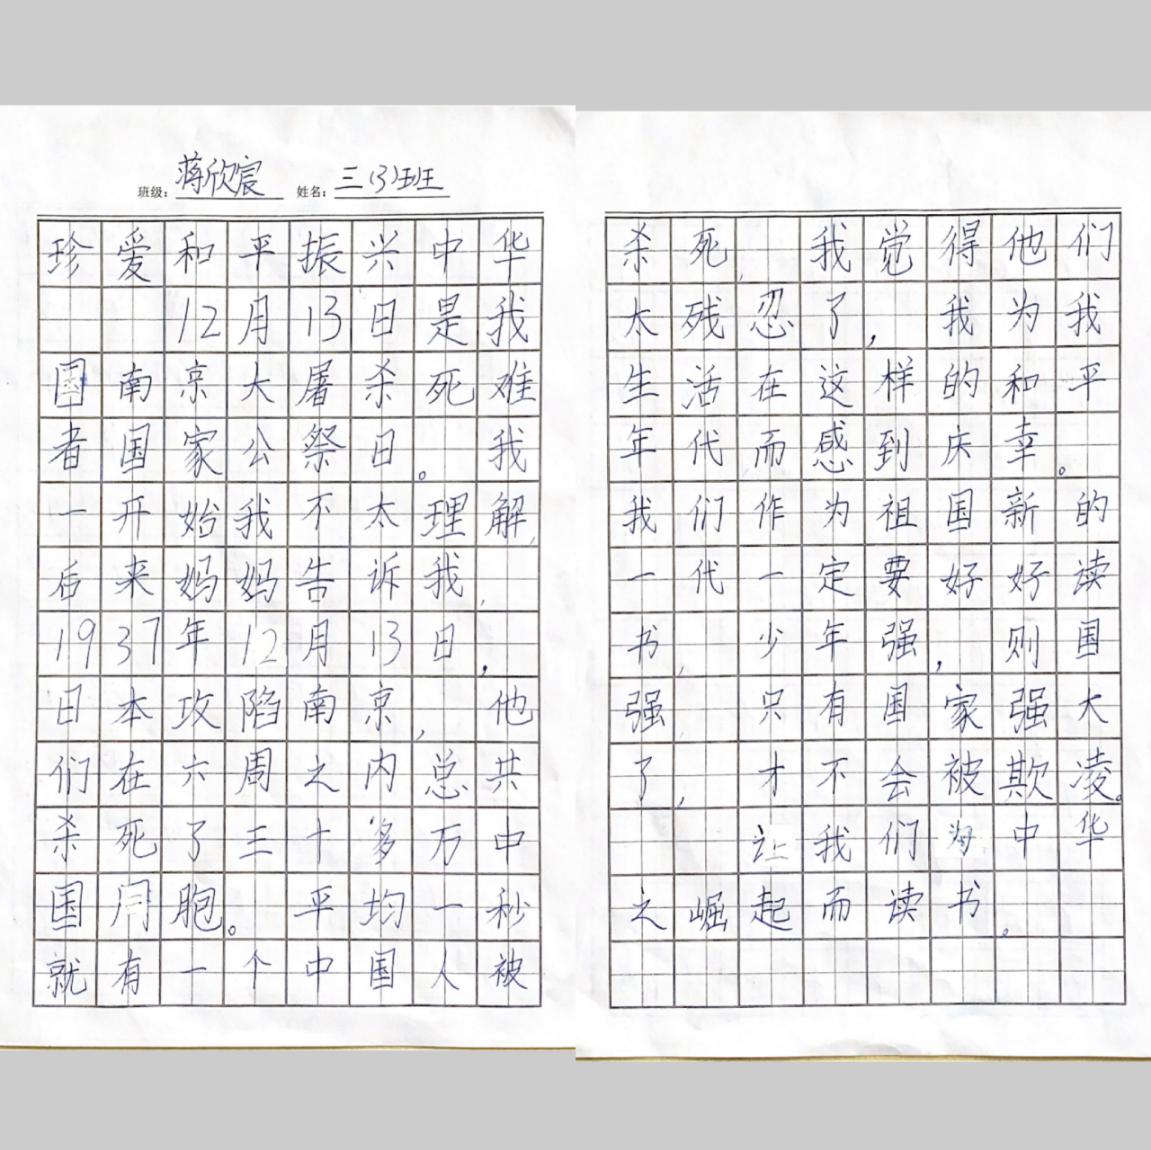 班级：蒋欣宸 姓名：三（3）班
珍爱和平振兴中华
12月13日是我
国南京大屠杀死难
者国家公祭日。我
一开始我不太理解，
后来妈妈告诉我，
1937年12月13日，
日本攻陷南京，他
们在六周之内总共
杀死了三十多万中
国同胞。平均一秒
就有一个中国人被
杀死，我觉得他们
太残忍了，我为我
生活在这样的和平
年代而感到庆幸。
我们作为祖国新的
一代一定要好好读
书，少年强，则国
强，只有国家强大
了，才不会被欺凌。
让我们为中华
之崛起而读书。